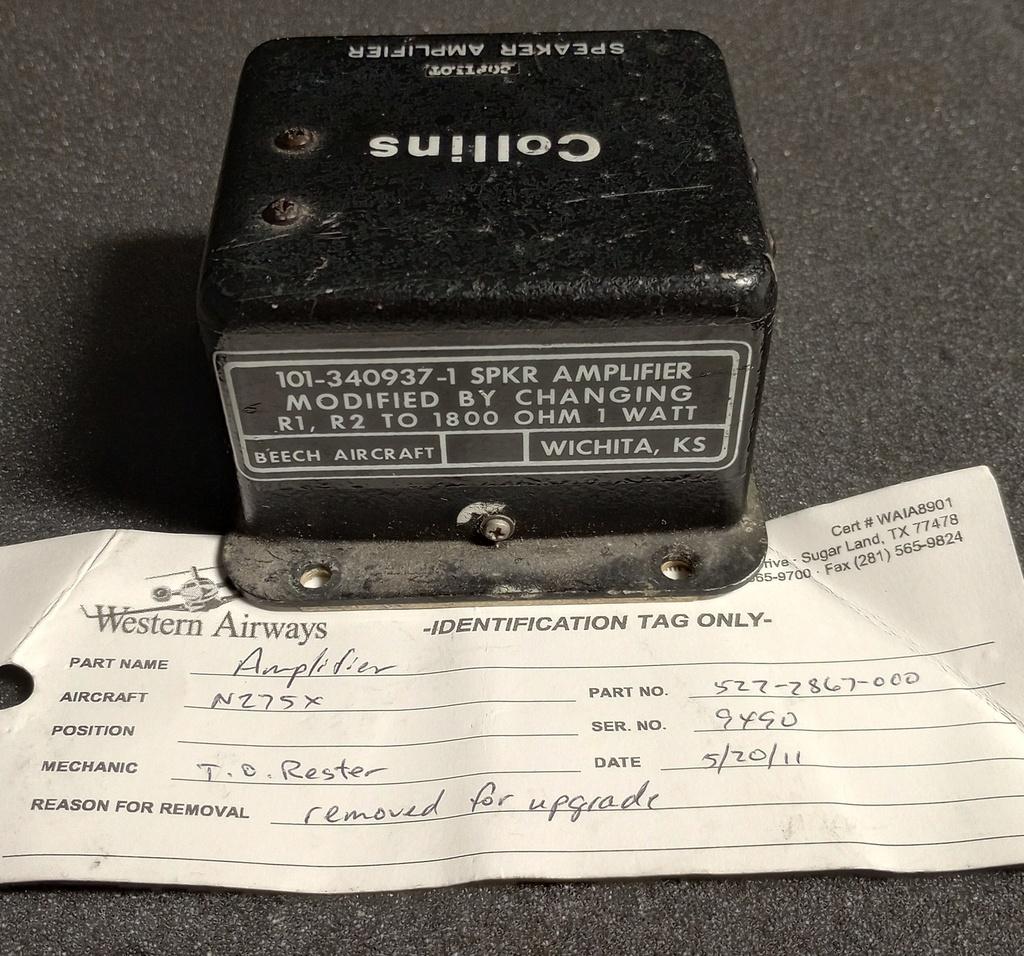 SPEAKER AMPLIFIER
COPILOT
Collins
101-340937-1 SPKR AMPLIFIER
MODIFIED BY CHANGING
R1, R2 TO 1800 OHM 1 WATT
BEECH AIRCRAFT WICHITA, KS
Cert # WAIA8901
Sugar Land, TX 77478
65-9700 · Fax (281) 565-9824
Western Airways -IDENTIFICATION TAG ONLY-
PART NAME Amplifier
AIRCRAFT N275X PART NO. 527-2867-000
POSITION SER. NO. 9490
MECHANIC T.O. Rester DATE 5/20/11
REASON FOR REMOVAL removed for upgrade